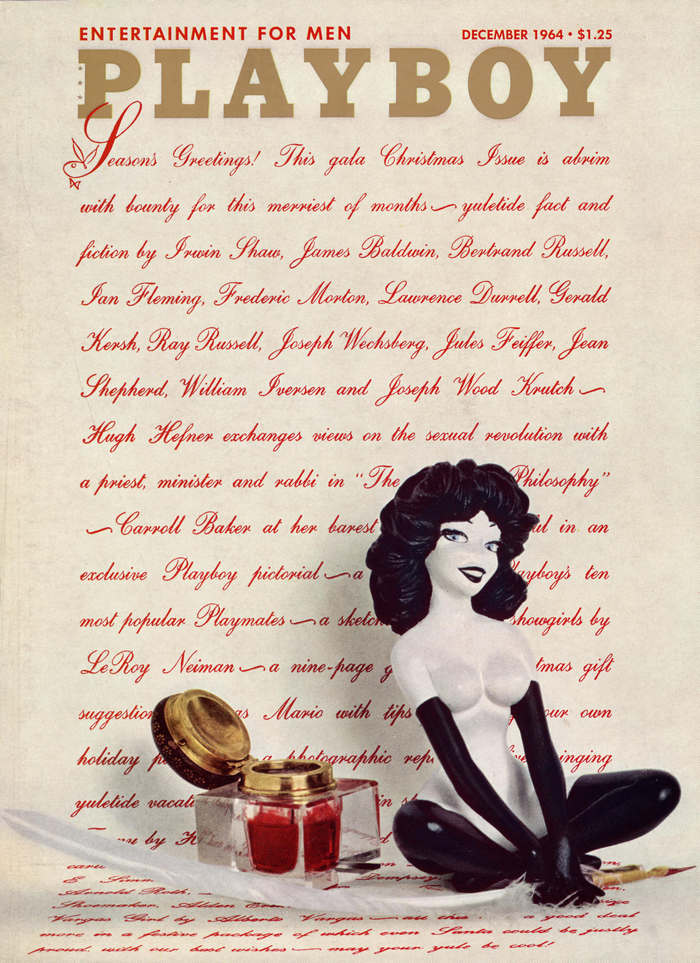 ENTERTAINMENT FOR MEN
DECEMBER 1964 • $1.25
PLAYBOY
Season's Greetings! This gala Christmas Issue is abrim
with bounty for this merriest of months — yuletide fact and
fiction by Irwin Shaw, James Baldwin, Bertrand Russell,
Ian Fleming, Frederic Morton, Lawrence Durrell, Gerald
Kersh, Ray Russell, Joseph Wechsberg, Jules Feiffer, Jean
Shepherd, William Iversen and Joseph Wood Krutch —
Hugh Hefner exchanges views on the sexual revolution with
a priest, minister and rabbi in "The Philosophy"
— Carroll Baker at her barest in an
exclusive Playboy pictorial — a ten
most popular Playmates — a showgirls by
LeRoy Neiman — a nine-page gift
suggestion Mario with tips own
holiday a photographic
yuletide in
by
E.
Arnold Roth,
Shoemaker,
Vargas Girl by Alberto Vargas — all this a good deal
more in a festive package of which even Santa could be justly
proud. with our best wishes — may your yule be cool!